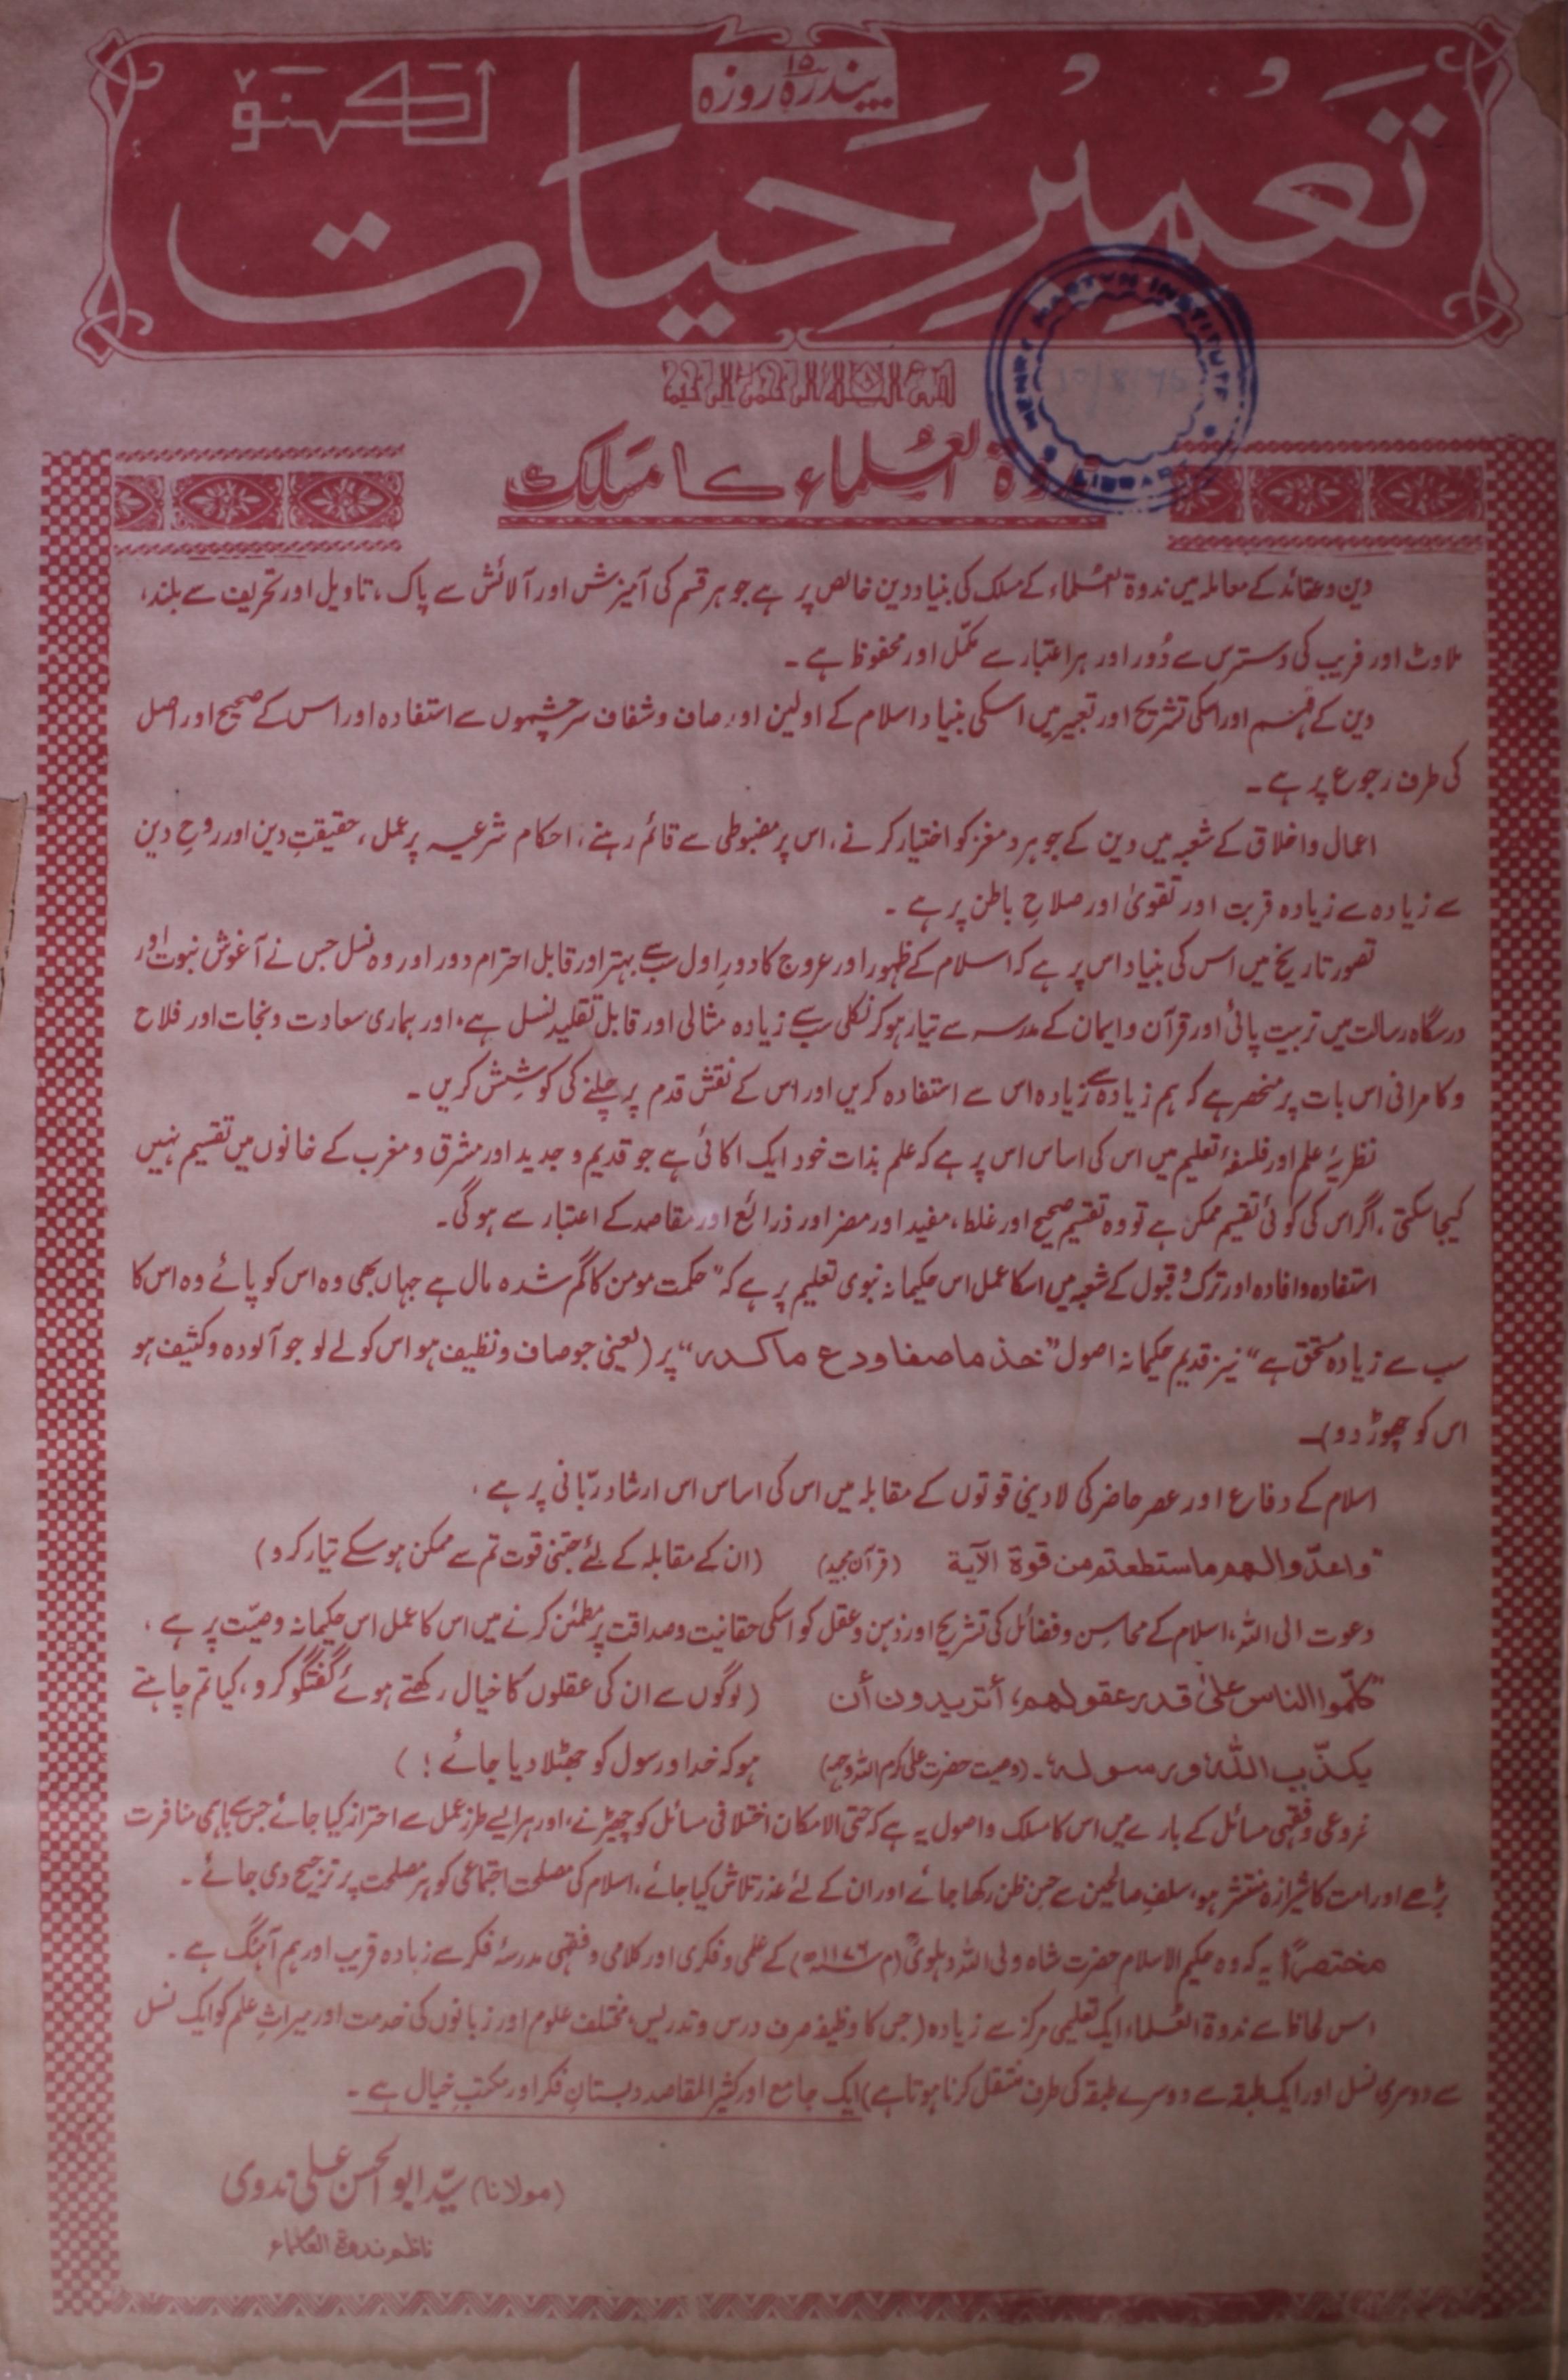 پندرہ ۱۵ روزہ
لکھنؤ
تعمیرِ حیات
HENRY MARTYN INSTITUTE
ندوۃ العلماء کا مسلک
دین و عقائد کے معاملہ میں ندوۃ العلماء کے مسلک کی بنیاد دین خالص پر ہے جو ہر قسم کی آمیزش اور آلائش سے پاک، تاویل اور تحریف سے بلند،
ملاوٹ اور فریب کی دسترس سے دُور اور ہر اعتبار سے مکمّل اور محفوظ ہے۔
دین کے فہم اور اسکی تشریح اور تعبیر میں اسکی بنیاد اسلام کے اولین اور صاف و شفاف سرچشموں سے استفادہ اور اس کے صحیح اور اصل
کی طرف رجوع پر ہے۔
اعمال و اخلاق کے شعبہ میں دین کے جوہر و مغز کو اختیار کرنے، اس پر مضبوطی سے قائم رہنے، احکام شرعیہ پر عمل، حقیقتِ دین اور روحِ دین
سے زیادہ سے زیادہ قربت اور تقویٰ اور صلاحِ باطن پر ہے۔
تصور تاریخ میں اس کی بنیاد اس پر ہے کہ اسلام کے ظہور اور عروج کا دورِ اول سب سے بہتر اور قابل احترام دور اور وہ نسل جس نے آغوش نبوت اور
درسگاہ رسالت میں تربیت پائی اور قرآن و ایمان کے مدرسہ سے تیار ہو کر نکلی سب سے زیادہ مثالی اور قابل تقلید نسل ہے، اور ہماری سعادت و نجات اور فلاح
و کامرانی اس بات پر منحصر ہے کہ ہم زیادہ سے زیادہ اس سے استفادہ کریں اور اس کے نقش قدم پر چلنے کی کوشِش کریں۔
نظریۂ علم اور فلسفۂ تعلیم میں اس کی اساس اس پر ہے کہ علم بذات خود ایک اکائی ہے جو قدیم و جدید اور مشرق و مغرب کے خانوں میں تقسیم نہیں
کیجا سکتی، اگر اس کی کوئی تقسیم ممکن ہے تو وہ تقسیم صحیح اور غلط، مفید اور مضر اور ذرائع اور مقاصد کے اعتبار سے ہوگی۔
استفادہ و افادہ اور ترک و قبول کے شعبہ میں اسکا عمل اس حکیمانہ نبوی تعلیم پر ہے کہ "حکمت مومن کا گم شدہ مال ہے جہاں بھی وہ اس کو پائے وہ اس کا
سب سے زیادہ مستحق ہے" نیز قدیم حکیمانہ اصول "خذ ما صفا ودع ما کدر" پر (یعنی جو صاف و نظیف ہو اس کو لے لو جو آلودہ و کثیف ہو
اس کو چھوڑ دو)۔
اسلام کے دفاع اور عصر حاضر کی لادینی قوتوں کے مقابلہ میں اس کی اساس اس ارشاد ربّانی پر ہے،
"واعدّوا لہم ماستطعتم من قوۃ الآیۃ (قرآن مجید) (ان کے مقابلہ کے لئے جتنی قوت تم سے ممکن ہو سکے تیار کرو)
دعوت الی اللہ، اسلام کے محاسِن و فضائل کی تشریح اور ذہن و عقل کو اسکی حقانیت و صداقت پر مطمئن کرنے میں اس کا عمل اس حکیمانہ وصیّت پر ہے،
"کلّموا الناس علیٰ قدر عقولہم، أتریدون أن (لوگوں سے ان کی عقلوں کا خیال رکھتے ہوئے گفتگو کرو، کیا تم چاہتے
یکذّب اللہ ورسولہ"۔ (وصیت حضرت علی کرم اللہ وجہہ) ہو کہ خدا و رسول کو جھٹلا دیا جائے؛)
فروعی و فقہی مسائل کے بارے میں اس کا مسلک و اصول یہ ہے کہ حتی الامکان اختلافی مسائل کو چھیڑنے، اور ہر ایسے طرز عمل سے احتراز کیا جائے جس سے باہمی منافرت
بڑھے اور امت کا شیرازہ منتشر ہو، سلفِ صالحین سے حسن ظن رکھا جائے اور ان کے لئے عذر تلاش کیا جائے، اسلام کی مصلحت اجتماعی کو ہر مصلحت پر ترجیح دی جائے۔
مختصراً یہ کہ وہ حکیم الاسلام حضرت شاہ ولی اللہ دہلویؒ (م ۱۱۷۶ھ) کے علمی و فکری اور کلامی و فقہی مدرسۂ فکر سے زیادہ قریب اور ہم آہنگ ہے۔
اس لحاظ سے ندوۃ العلماء ایک تعلیمی مرکز سے زیادہ (جس کا وظیفہ صرف درس و تدریس، مختلف علوم اور زبانوں کی خدمت اور میراثِ علم کو ایک نسل
سے دوسری نسل اور ایک طبقہ سے دوسرے طبقہ کی طرف منتقل کرنا ہوتا ہے) ایک جامع اور کثیر المقاصد دبستانِ فکر اور مکتبِ خیال ہے۔
(مولانا) سیّد ابو الحسن علی ندوی
ناظم ندوۃ العلماء